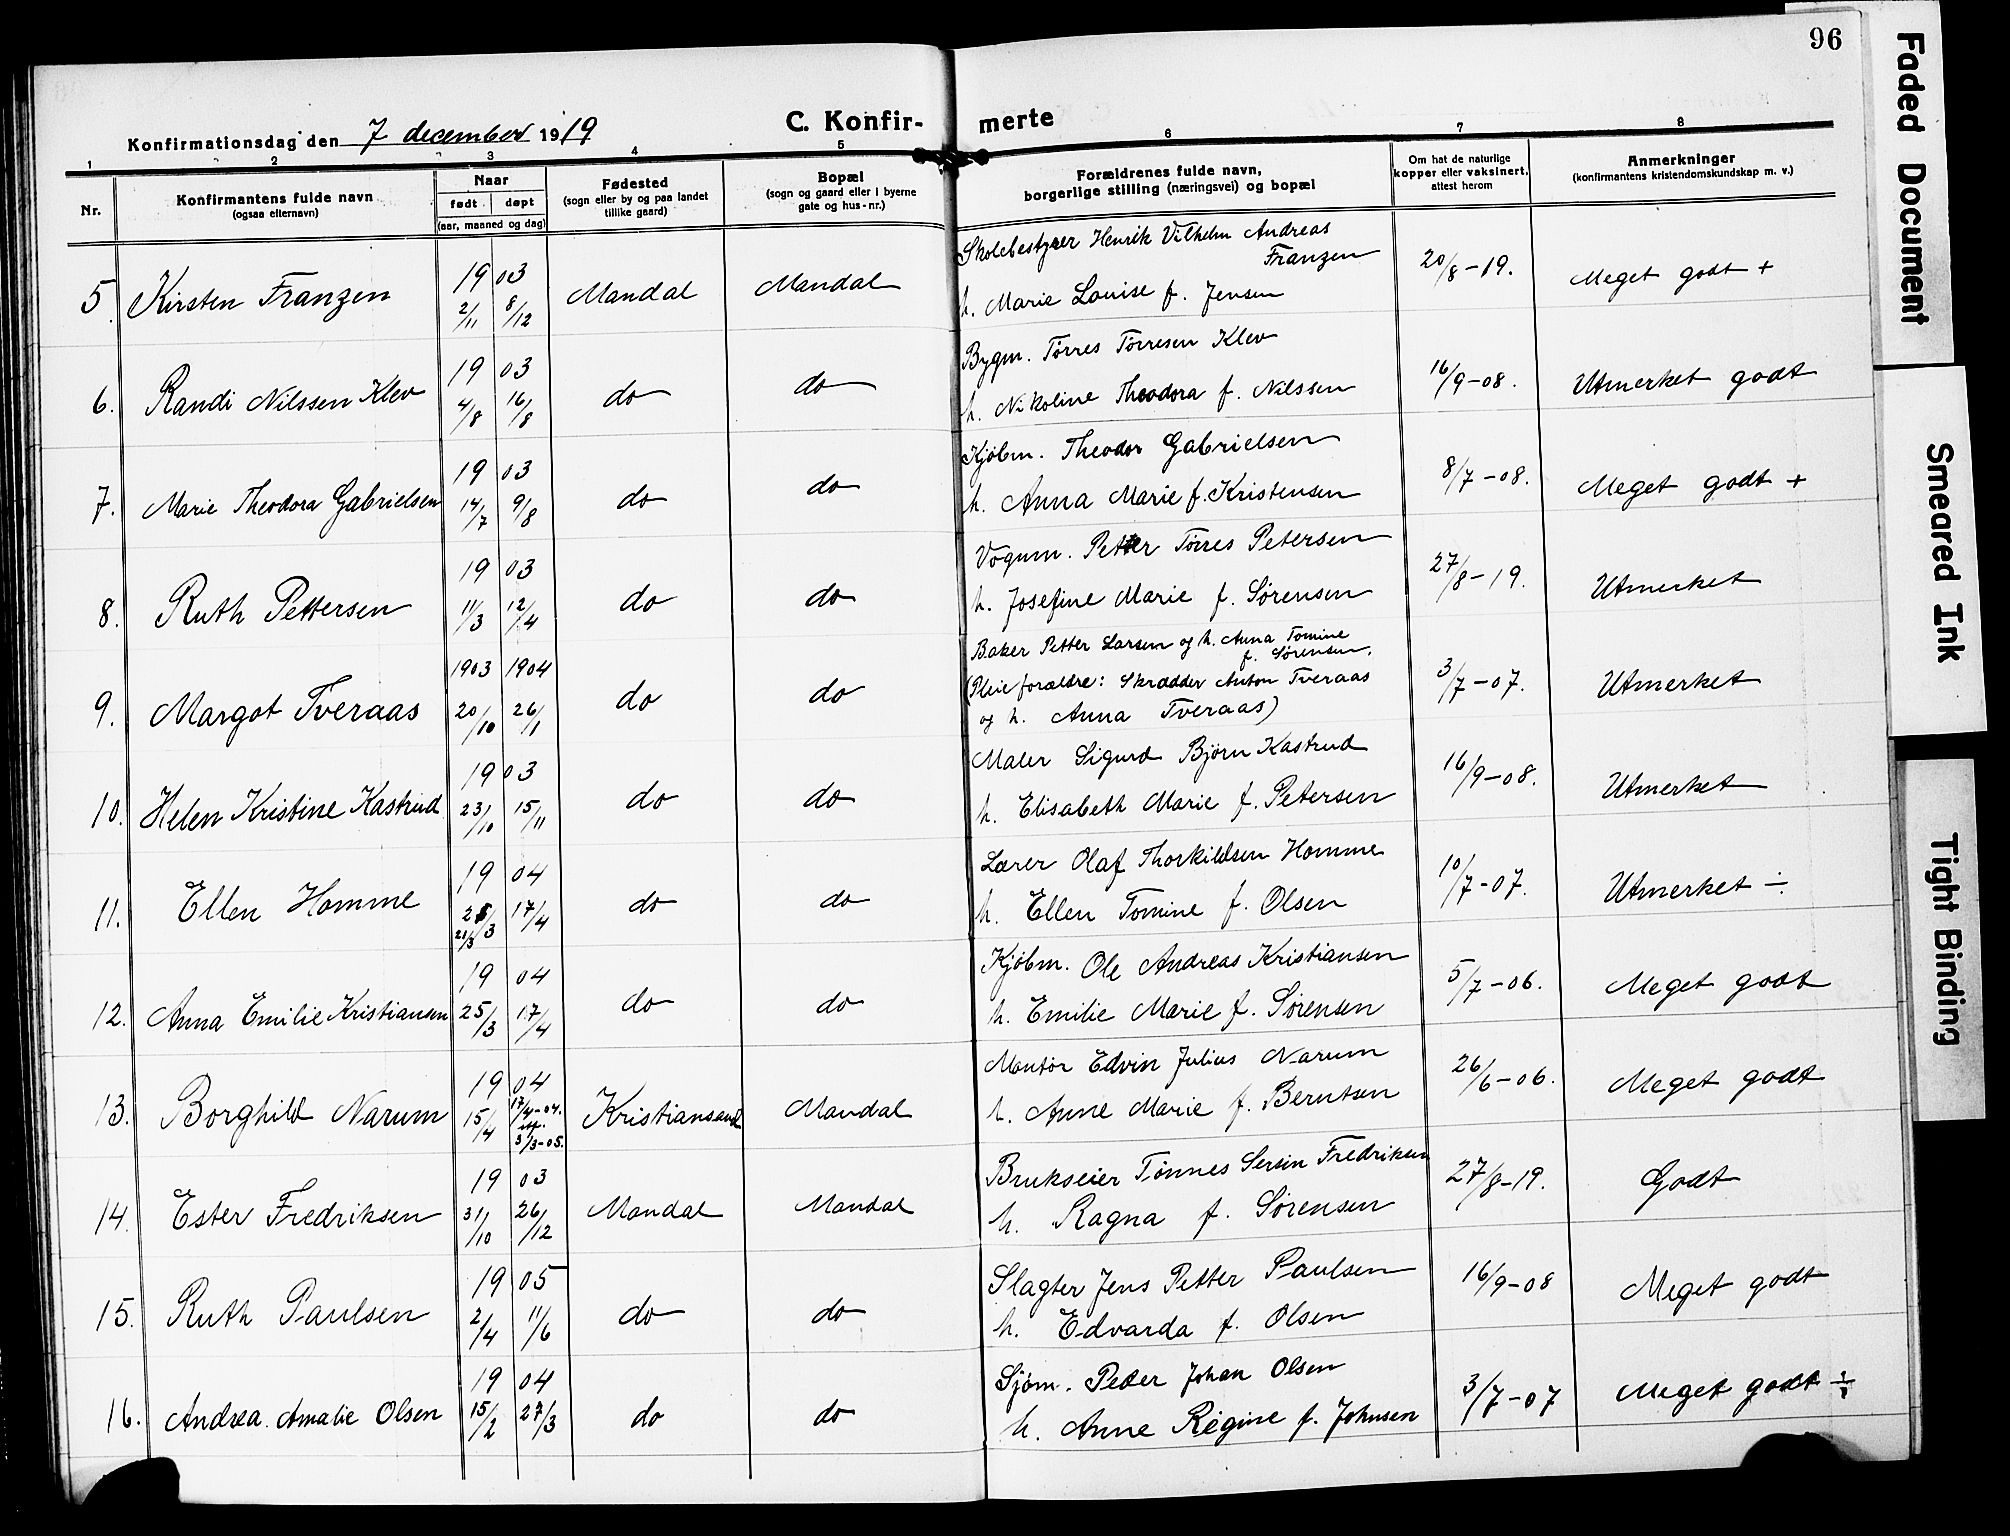 96
Faded Document
Smeared Ink
Tight Binding
C. Konfirmerte
Konfirmationsdag den 7 december 1919
1 2 3 4 5 6 7 8
Nr.
Konfirmantens fulde navn
(ogsaa efternavn)
Naar
født døpt
(aar, maaned og dag)
Fødested
(sogn eller by og paa landet
tillike gaard)
Bopæl
(sogn og gaard eller i byerne
gate og hus-nr.)
Forældrenes fulde navn,
borgerlige stilling (næringsvei) og bopæl
Om hat de naturlige
kopper eller vaksinert,
attest herom
Anmerkninger
(konfirmantens kristendomskundskap m. v.)
5. Kirsten Franzen 1903 2/11 8/12 Mandal Mandal
Skolebestyrer Henrik Vilhelm Andreas
Franzen
h. Marie Louise f. Jensen
20/8-19. Meget godt +
6. Randi Nilssen Klev 1903 4/8 16/8 do do
Bygm. Tørres Tørresen Klev
h. Nikoline Theodora f. Nilssen
16/9-08. Utmerket godt
7. Marie Theodora Gabrielsen 1903 14/7 9/8 do do
Kjøbm. Theodor Gabrielsen
h. Anna Marie f. Kristensen
8/7-08. Meget godt +
8. Ruth Pettersen 1903 11/3 12/4 do do
Vognm. Petter Tørres Petersen
h. Josefine Marie f. Sørensen
27/8-19. Utmerket
9. Margot Tveraas 1903 20/10 1904 26/1 do do
Baker Petter Larsen og h. Anna Tomine
f. Sørensen.
(Pleieforældre: Skrædder Anton Tveraas
og h. Anna Tveraas)
3/7-07. Utmerket
10. Helen Kristine Kastrud 1903 23/10 15/11 do do
Maler Sigurd Bjørn Kastrud
h. Elisabeth Marie f. Petersen
16/9-08. Utmerket
11. Ellen Homme 1904 21/3 17/4 do do
Lærer Olaf Thorkildsen Homme
h. Ellen Tomine f. Olsen
10/7-07. Utmerket ÷
12. Anna Emilie Kristiansen 1904 25/3 17/4 do do
Kjøbm. Ole Andreas Kristiansen
h. Emilie Marie f. Sørensen
5/7-06. Meget godt
13. Borghild Narum 1904 15/4 17/4-04. 3/3-05. Kristiansand Mandal
Montør Edvin Julius Narum
h. Anne Marie f. Berntsen
26/6-06. Meget godt
14. Ester Fredriksen 1903 31/10 26/12 Mandal Mandal
Brukseier Tønnes Sersin Fredriksen
h. Ragna f. Sørensen
27/8-19. Godt
15. Ruth Paulsen 1905 2/4 11/6 do do
Slagter Jens Petter Paulsen
h. Edvarda f. Olsen
16/9-08 Meget godt
16. Andrea Amalie Olsen 1904 15/2 27/3 do do
Sjøm. Peder Johan Olsen
h. Anne Regine f. Johnsen
3/7-07 Meget godt ÷